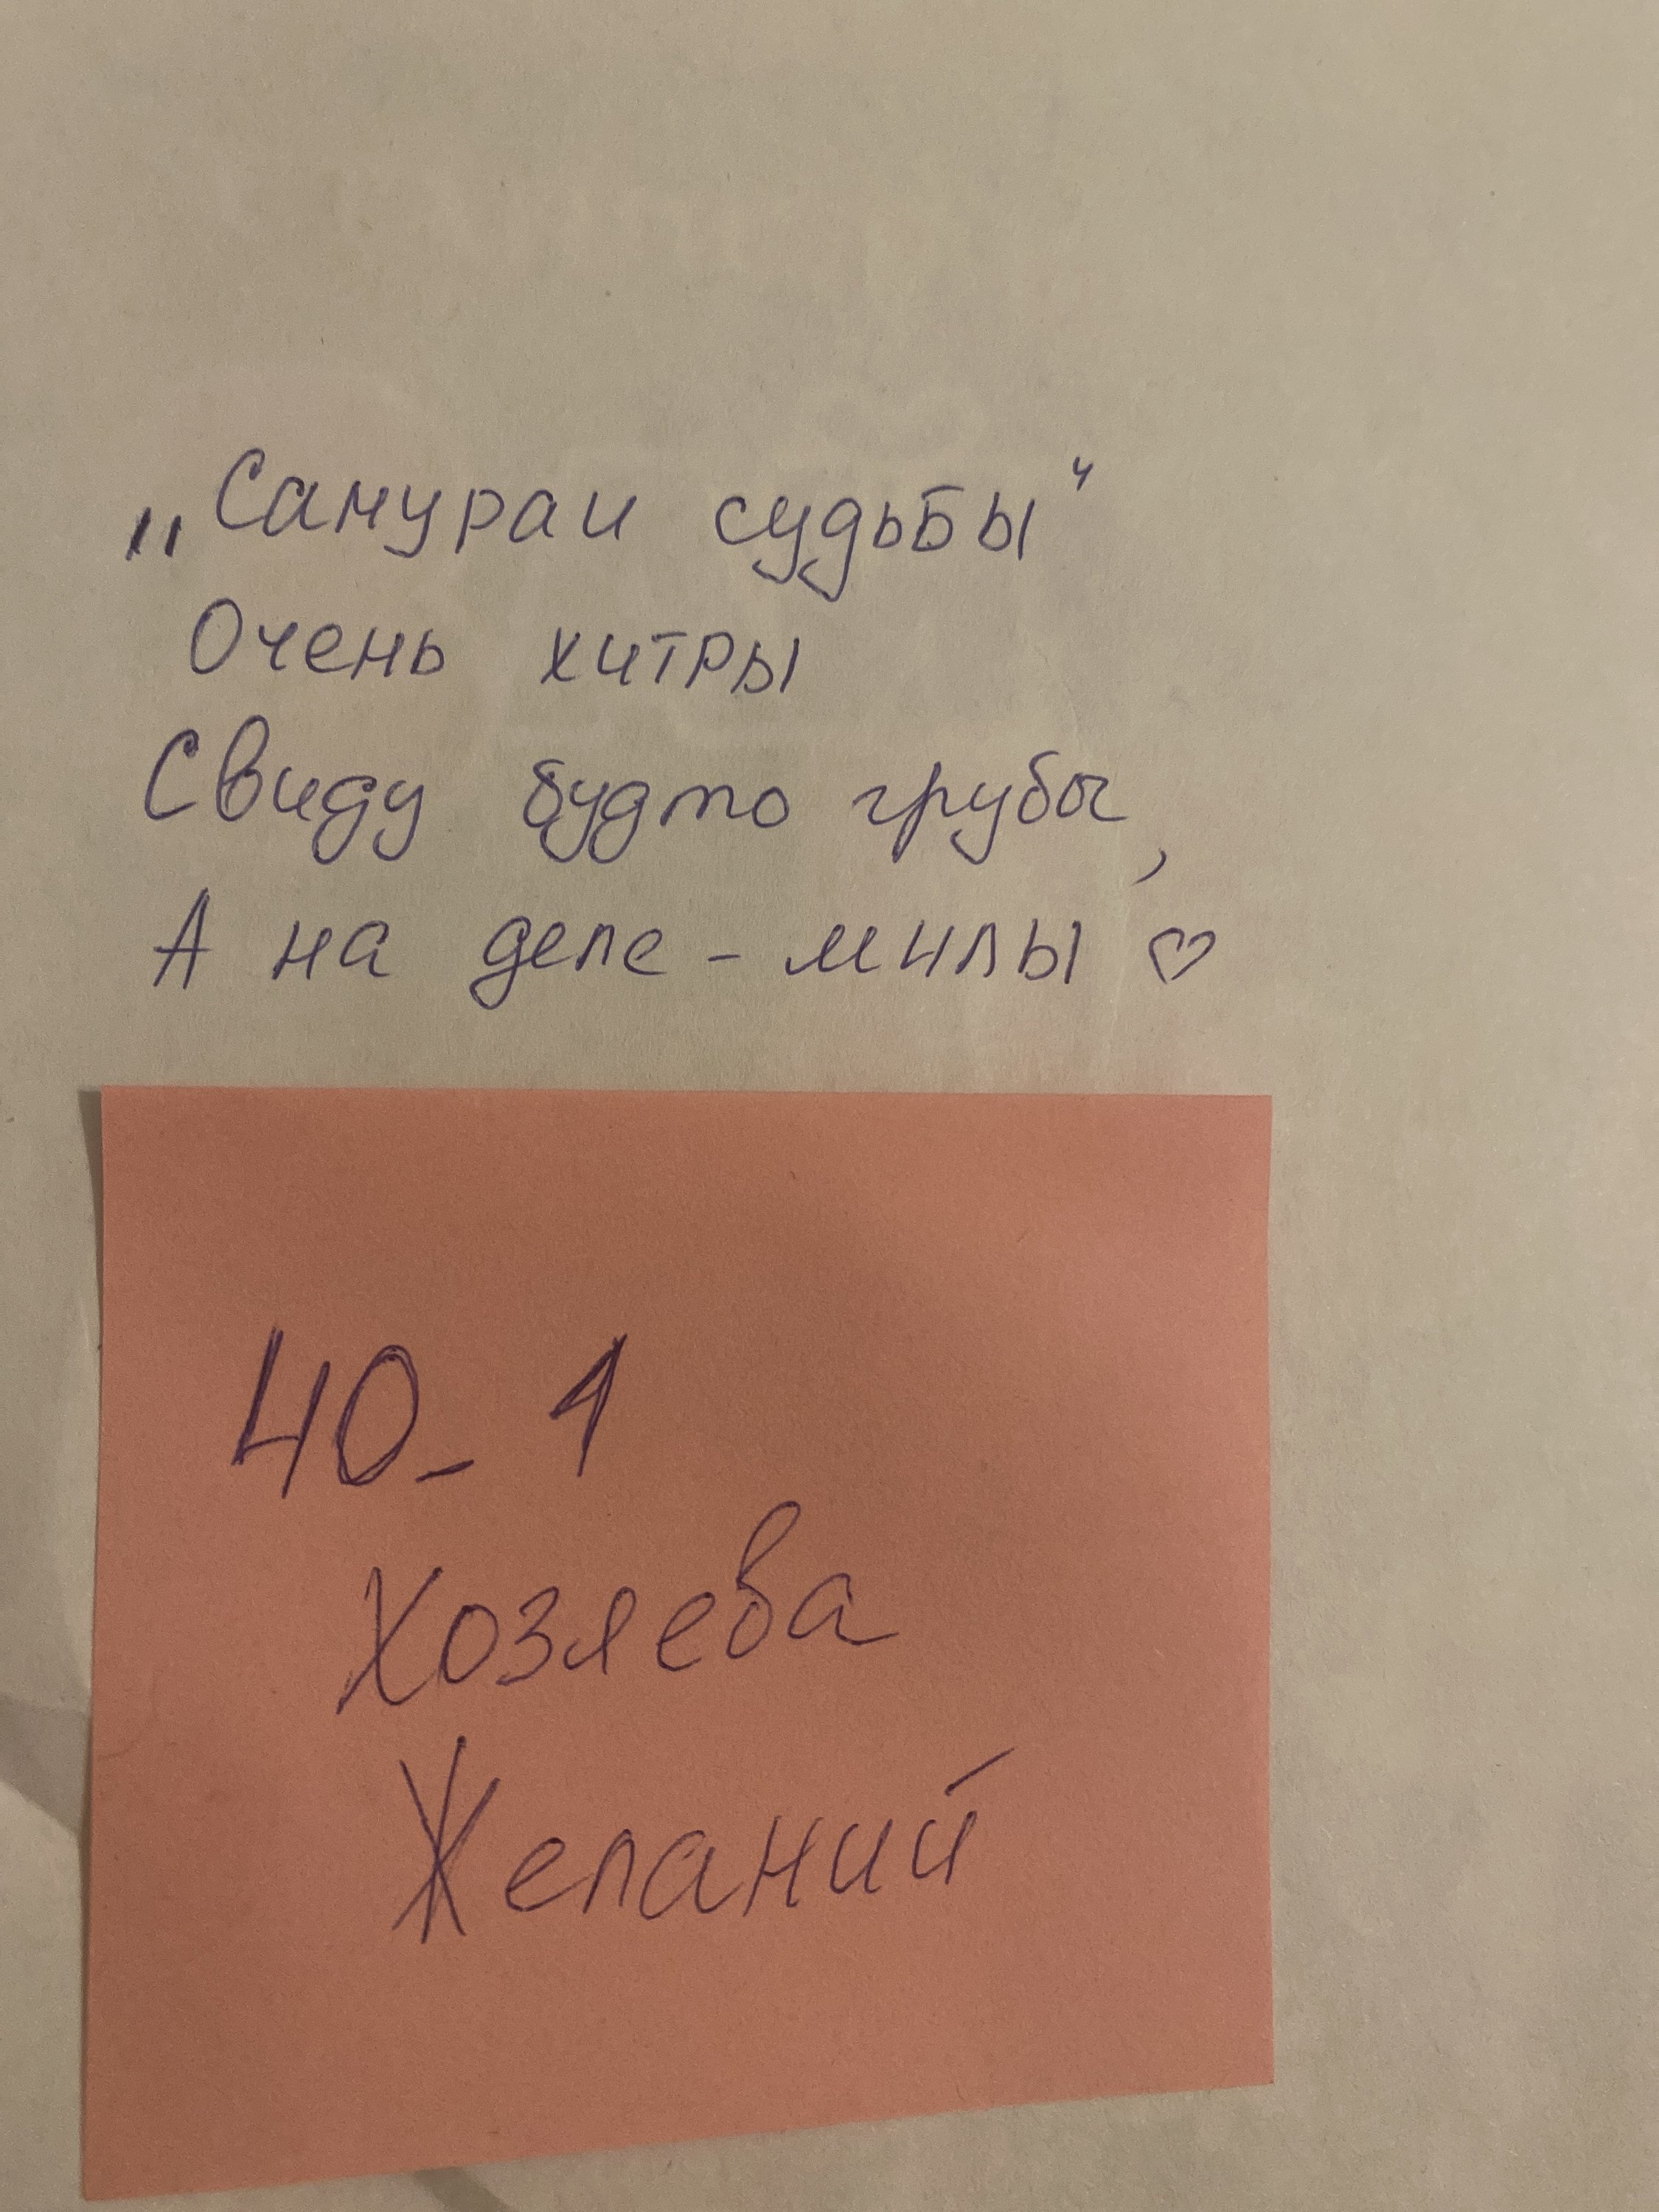 „Самураи судьбы"
Очень хитры
Свиду будто грубы,
А на деле - милы ♡
40-1
Хозяева
Желаний